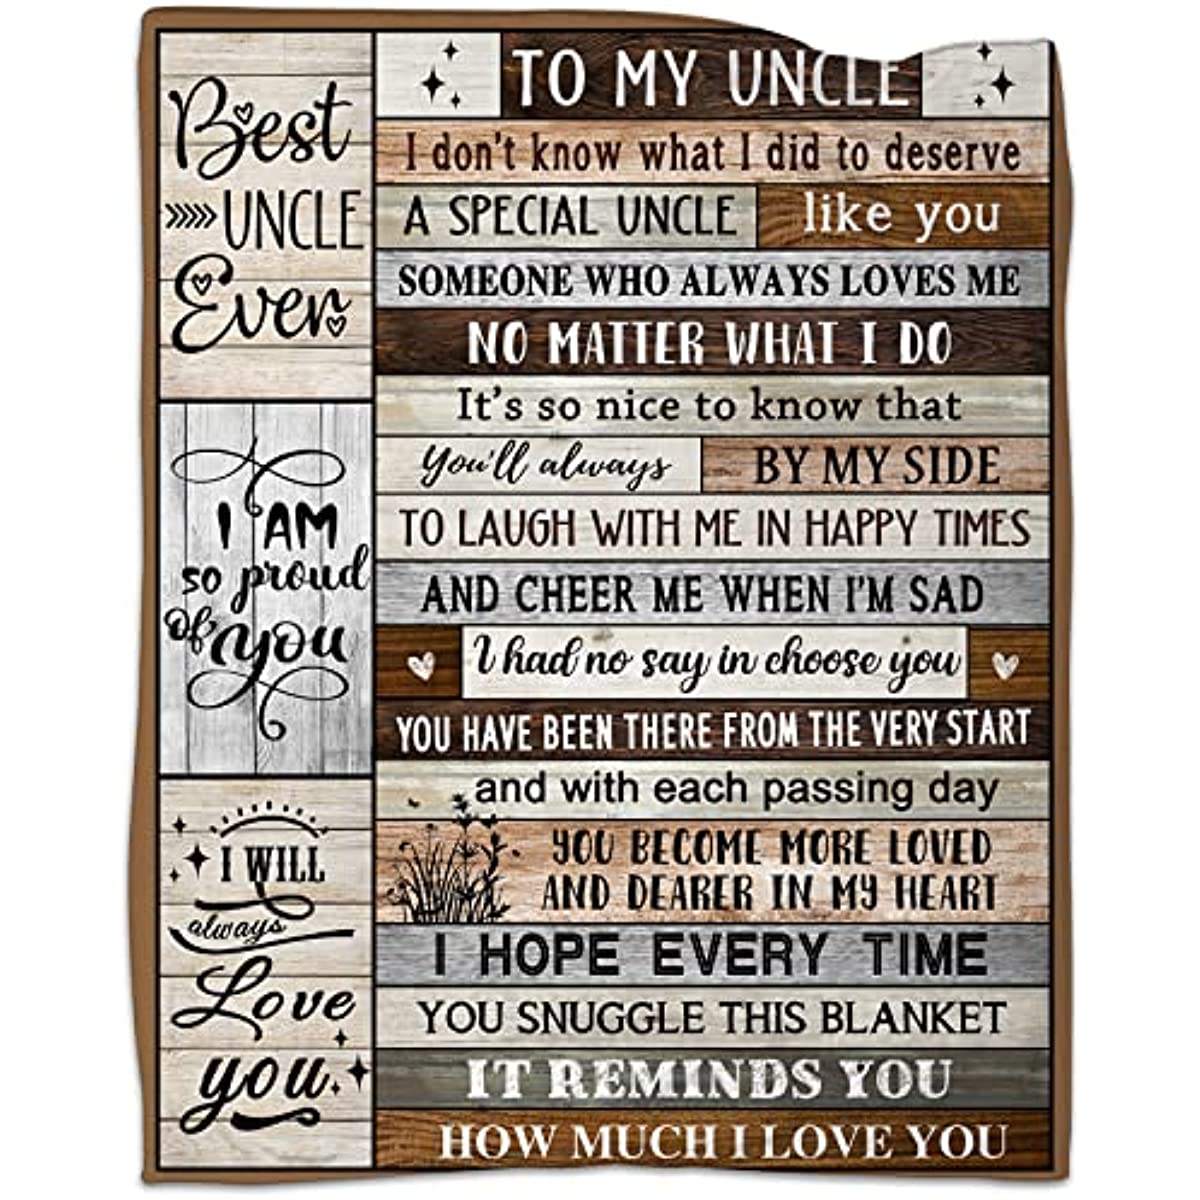 Best
UNCLE
Ever
I AM
so proud
of you
I WILL
always
Love
you
TO MY UNCLE
I don't know what I did to deserve
A SPECIAL UNCLE like you
SOMEONE WHO ALWAYS LOVES ME
NO MATTER WHAT I DO
It's so nice to know that
You'll always BY MY SIDE
TO LAUGH WITH ME IN HAPPY TIMES
AND CHEER ME WHEN I'M SAD
I had no say in choose you
YOU HAVE BEEN THERE FROM THE VERY START
and with each passing day
YOU BECOME MORE LOVED
AND DEARER IN MY HEART
I HOPE EVERY TIME
YOU SNUGGLE THIS BLANKET
IT REMINDS YOU
HOW MUCH I LOVE YOU